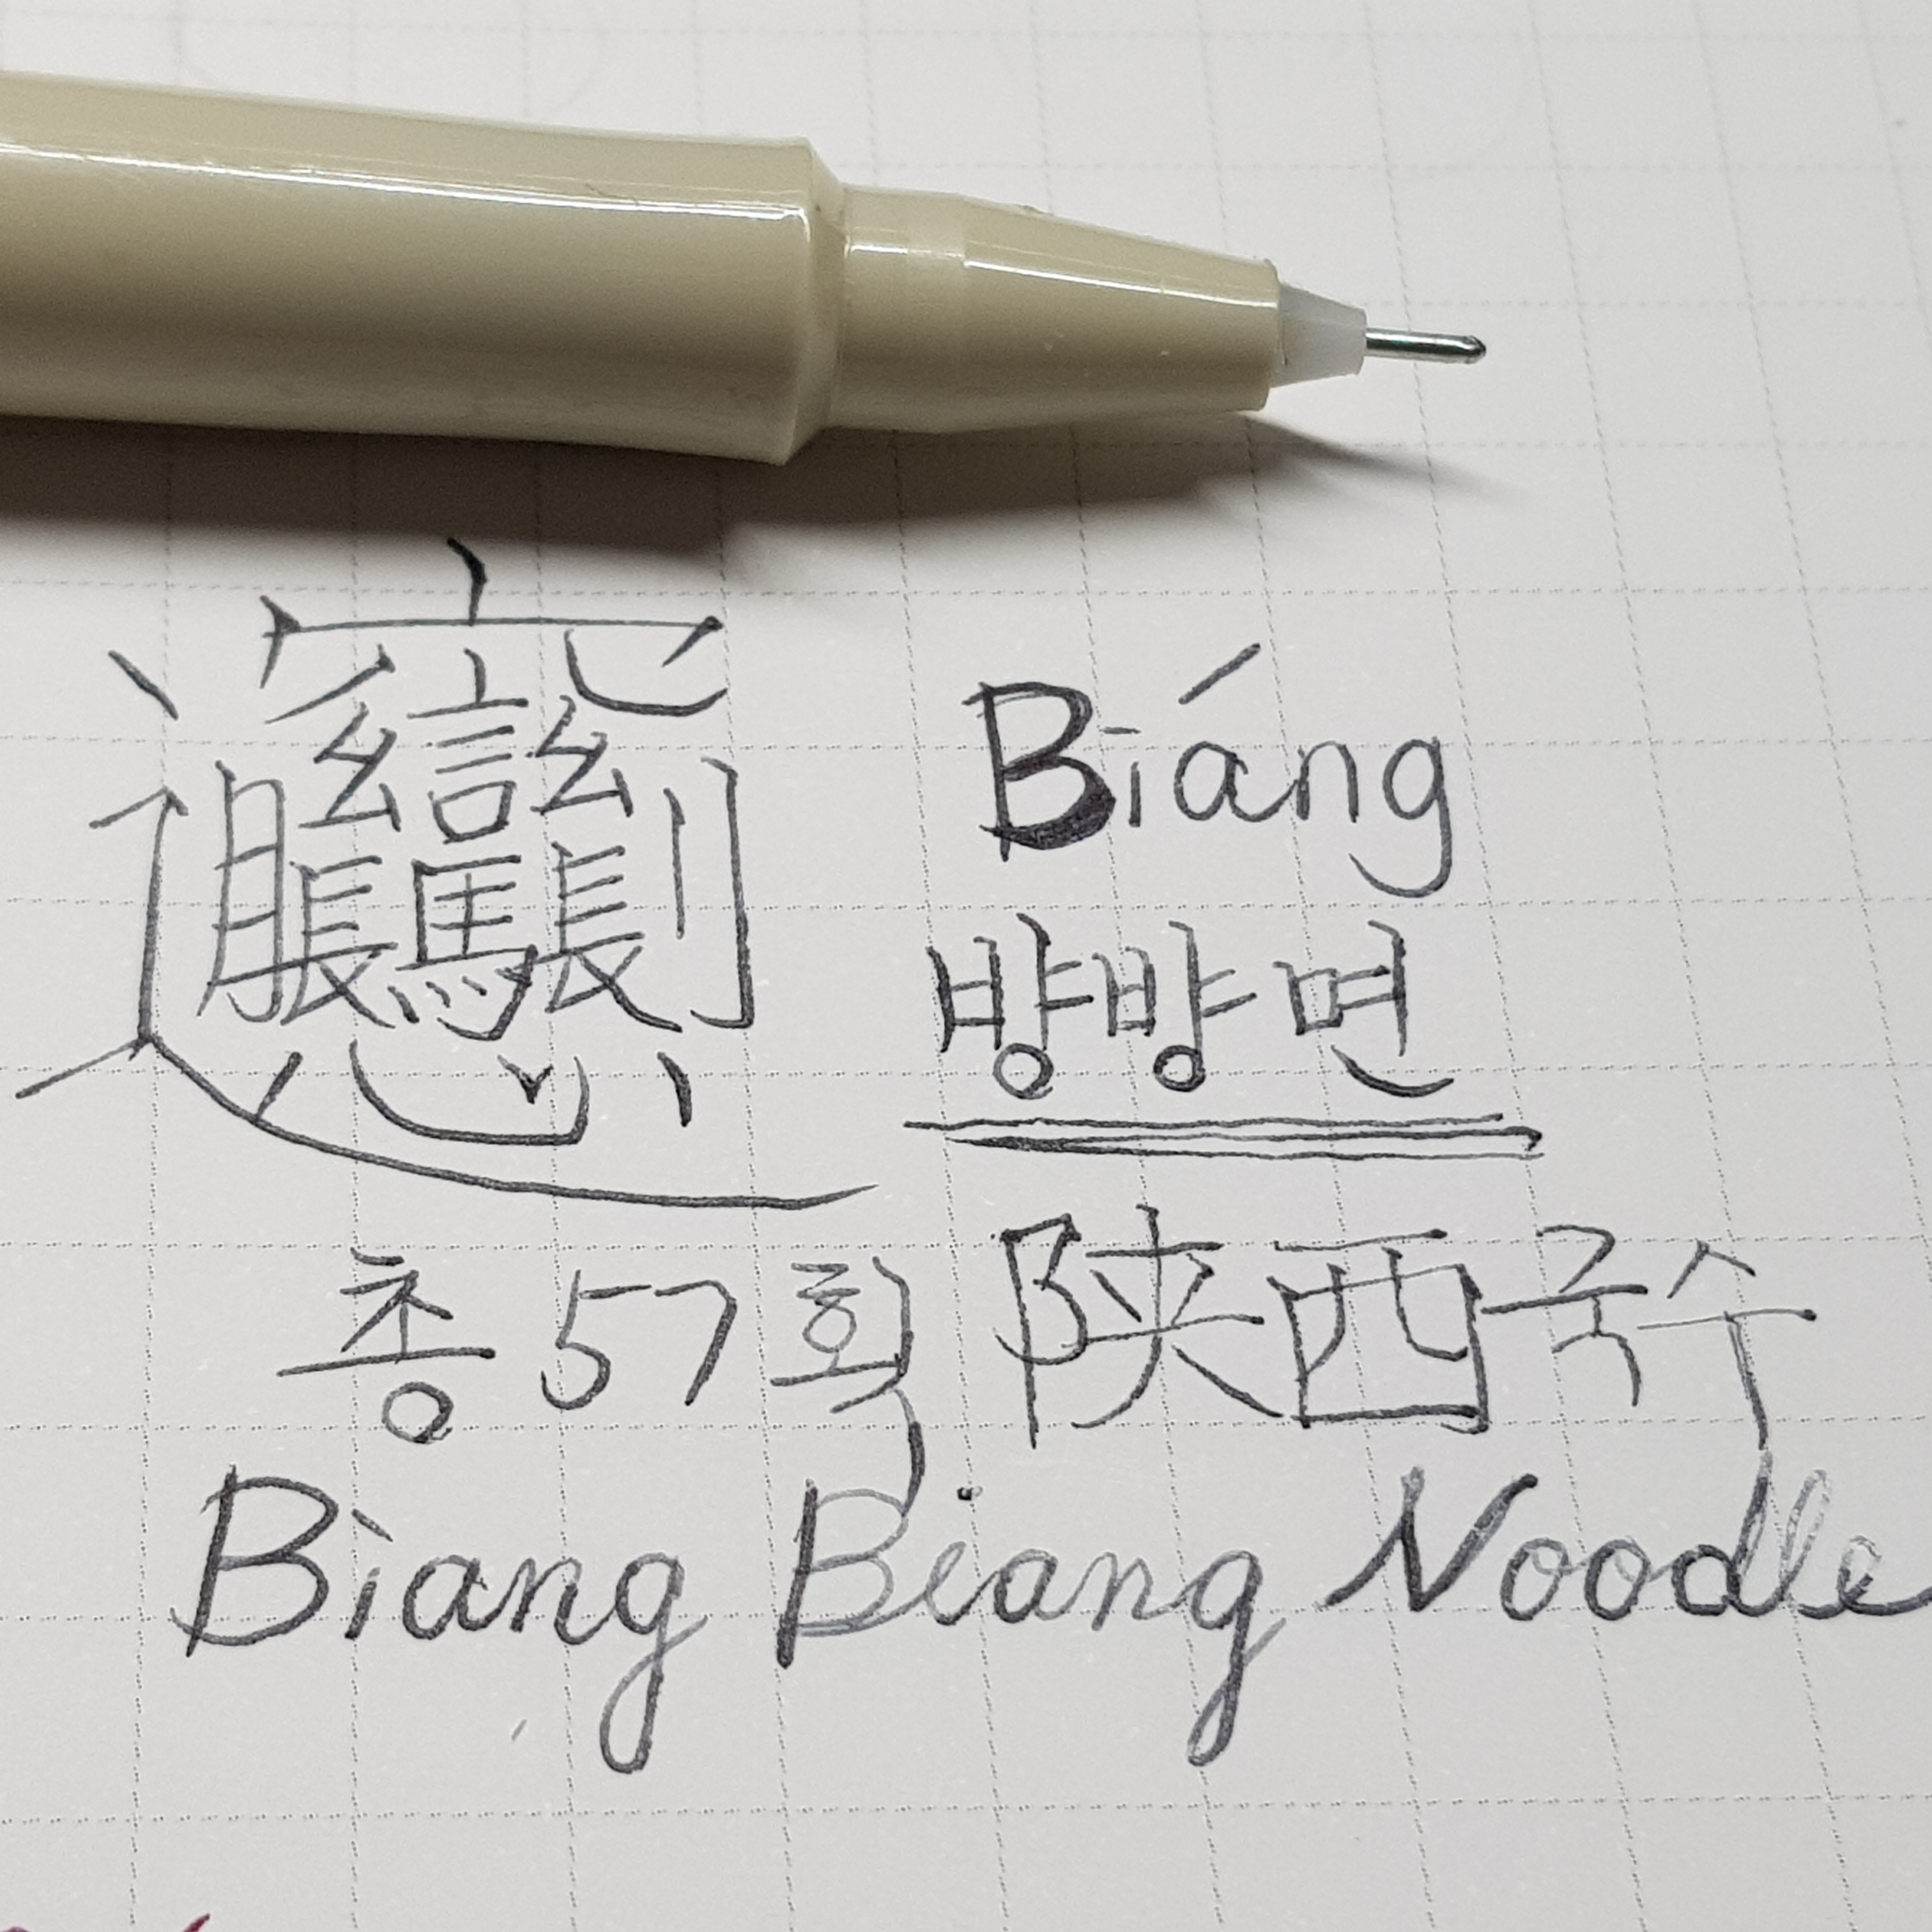 𰻞 Biáng
뱡뱡면
총 57획 陕西국수
Biang Biang Noodle